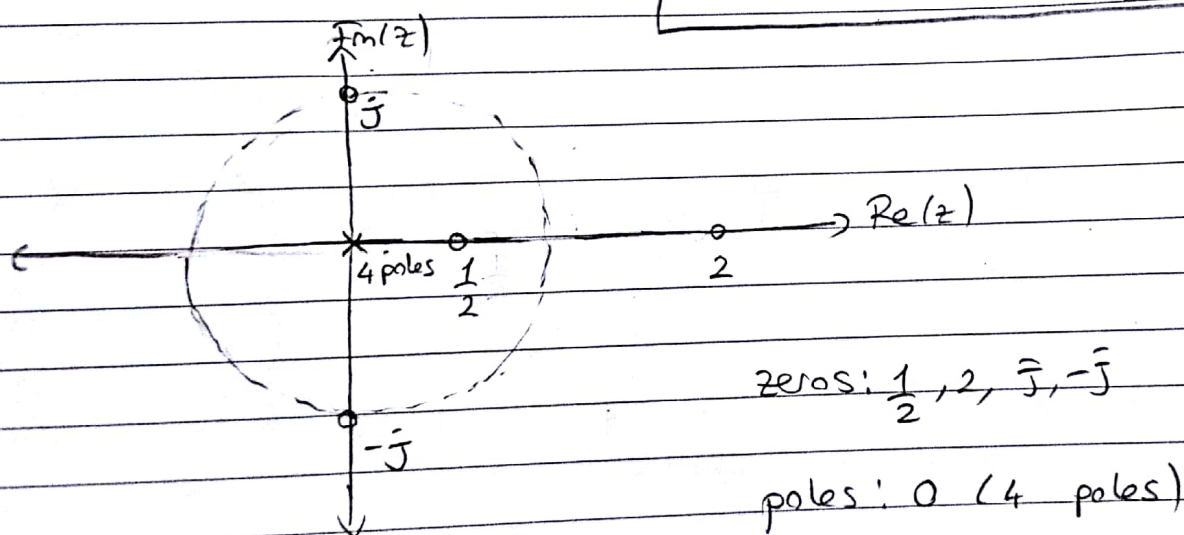 Im(z)
j
Re(z)
4 poles
1/2
2
-j
zeros: 1/2, 2, j, -j
poles: 0 (4 poles)